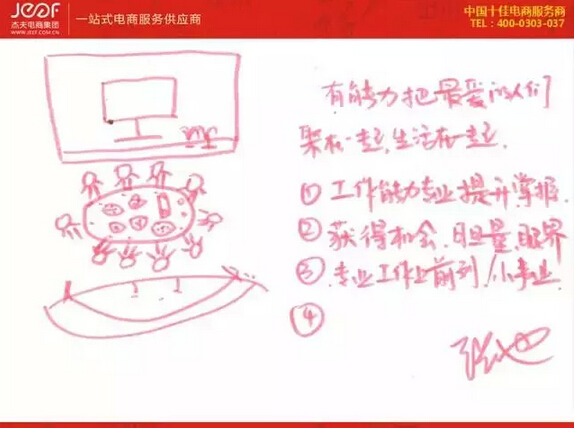 JEEF
杰夫电商集团
WWW.JEEF.COM.CN
一站式电商服务供应商
中国十佳电商服务商
TEL：400-0303-037
有能力把最爱的人们
聚在一起，生活在一起
① 工作能力专业提升掌握
② 获得机会、胆量、眼界
③ 专业工作上前列/小事业
④